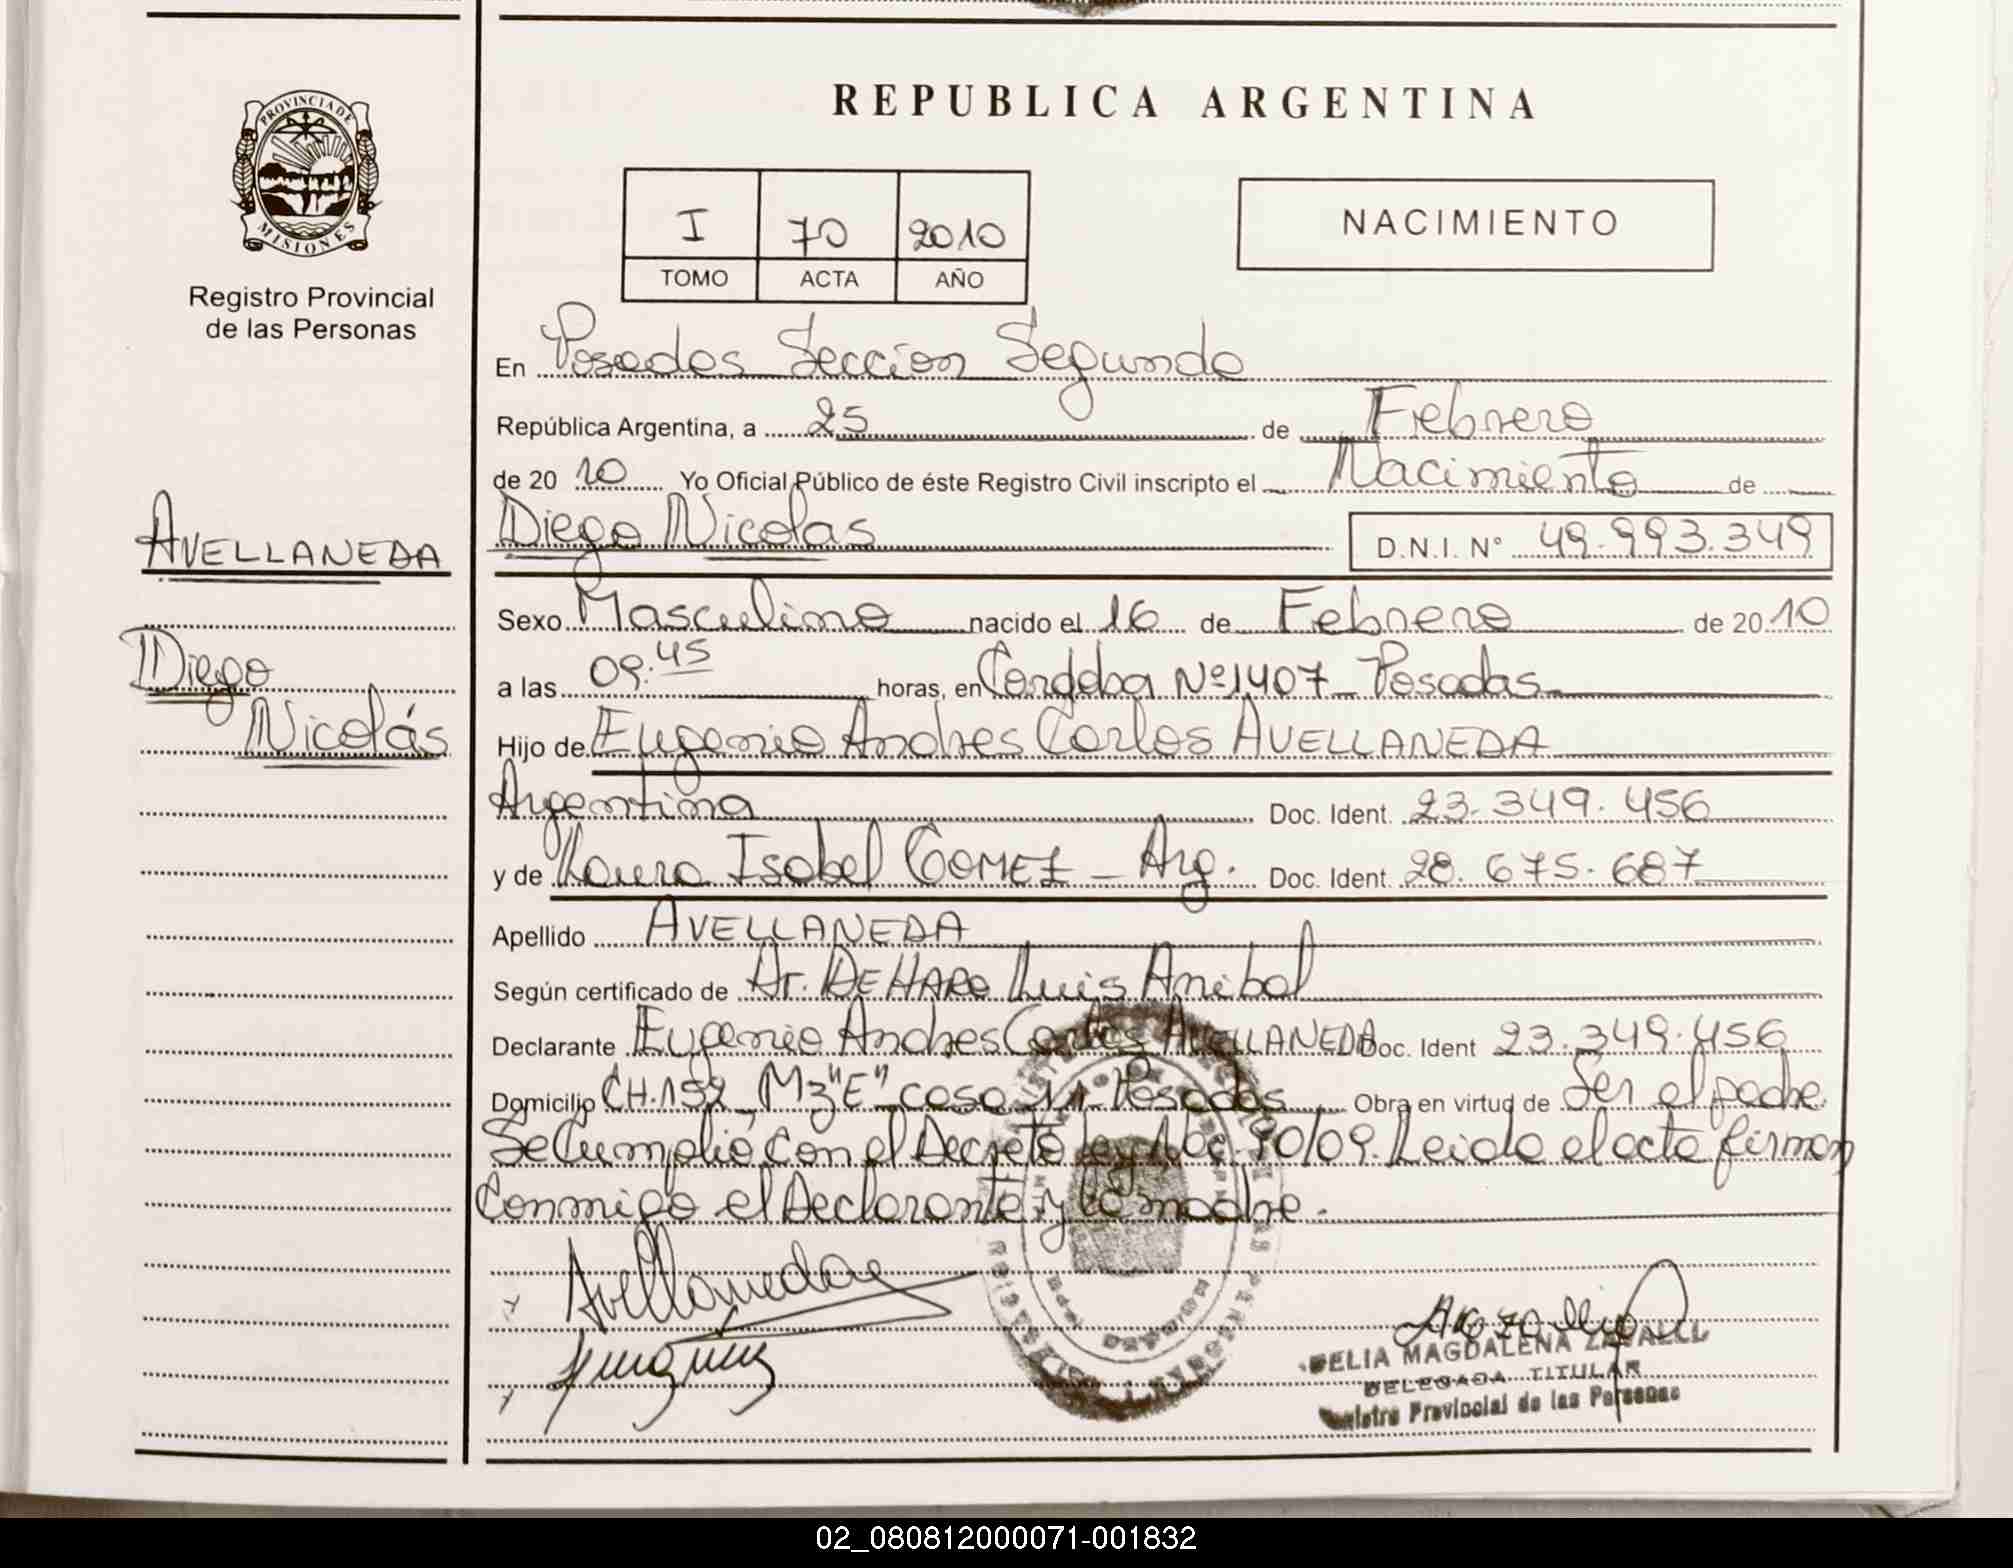 REPUBLICA ARGENTINA
PROVINCIA DE
MISIONES
Registro Provincial
de las Personas
I 70 2010
TOMO ACTA AÑO
NACIMIENTO
En Posadas Seccion Segunda
República Argentina, a 25 de Febrero
de 20 10 Yo Oficial Público de éste Registro Civil inscripto el Nacimiento de
AVELLANEDA
Diego Nicolas D.N.I. N° 49.993.349
Sexo Masculino nacido el 16 de Febrero de 20 10
Diego
a las 09.45 horas, en Cordoba Nº 1407 - Posadas
Nicolás
Hijo de Eugenio Andres Carlos AVELLANEDA
Argentina Doc. Ident. 23.349.456
y de Laura Isabel GOMEZ - Arg. Doc. Ident. 28.675.687
Apellido AVELLANEDA
Según certificado de Dr. DE HARO Luis Anibal
Declarante Eugenio Andres Carlos AVELLANEDA Doc. Ident 23.349.456
Domicilio CH.152 - Mz "E" - casa Posadas Obra en virtud de Ser el padre.
Se Cumplió con el Decreto Ley Nac. 90/09. Leida el acta firman
Conmigo el Declarante y la madre.
Avellaneda
DELIA MAGDALENA
DELEGADA TITULAR
Registro Provincial de las Personas
02_080812000071-001832